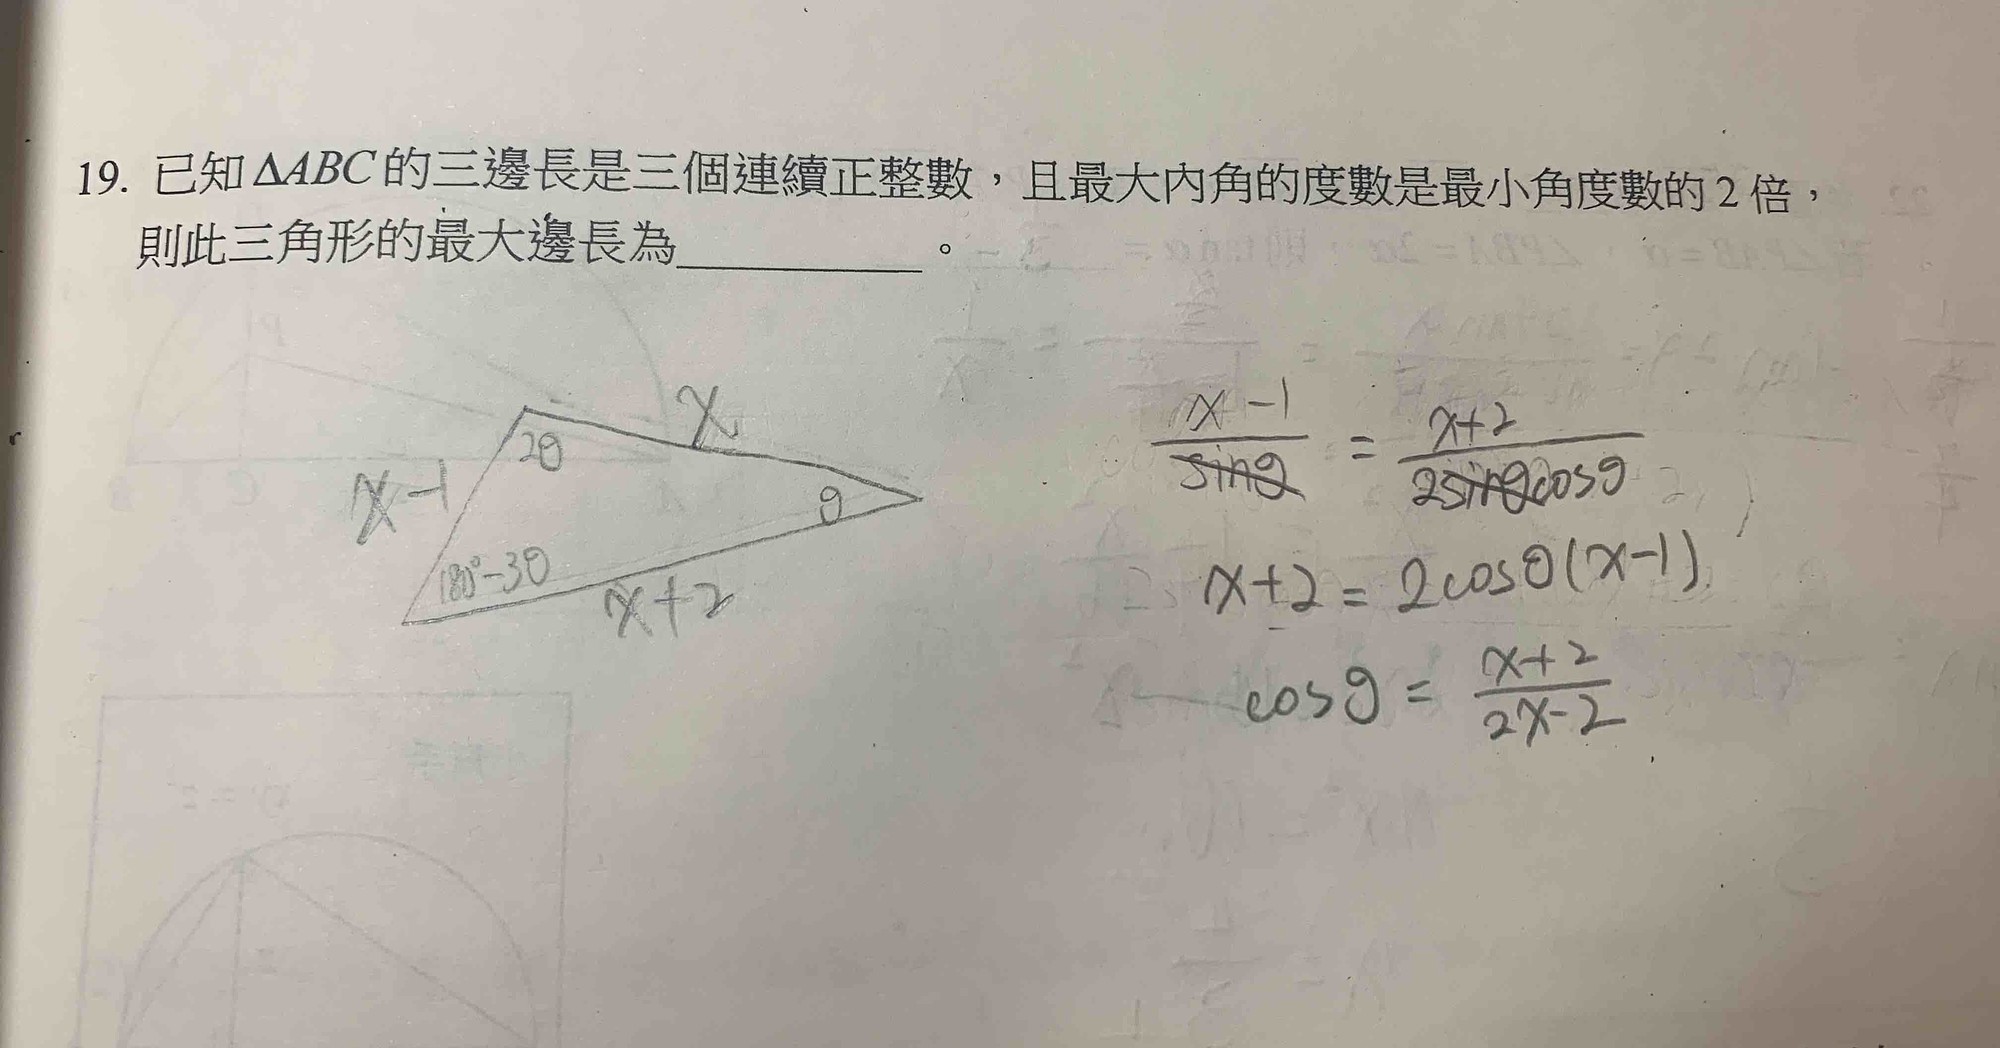 19. 已知ΔABC的三邊長是三個連續正整數，且最大內角的度數是最小角度數的2倍，
則此三角形的最大邊長為__________。
x
2θ
x-1
θ
180°-3θ
x+2
x-1/sinθ = x+2/2sinθcosθ
x+2 = 2cosθ(x-1)
cosθ = x+2/2x-2